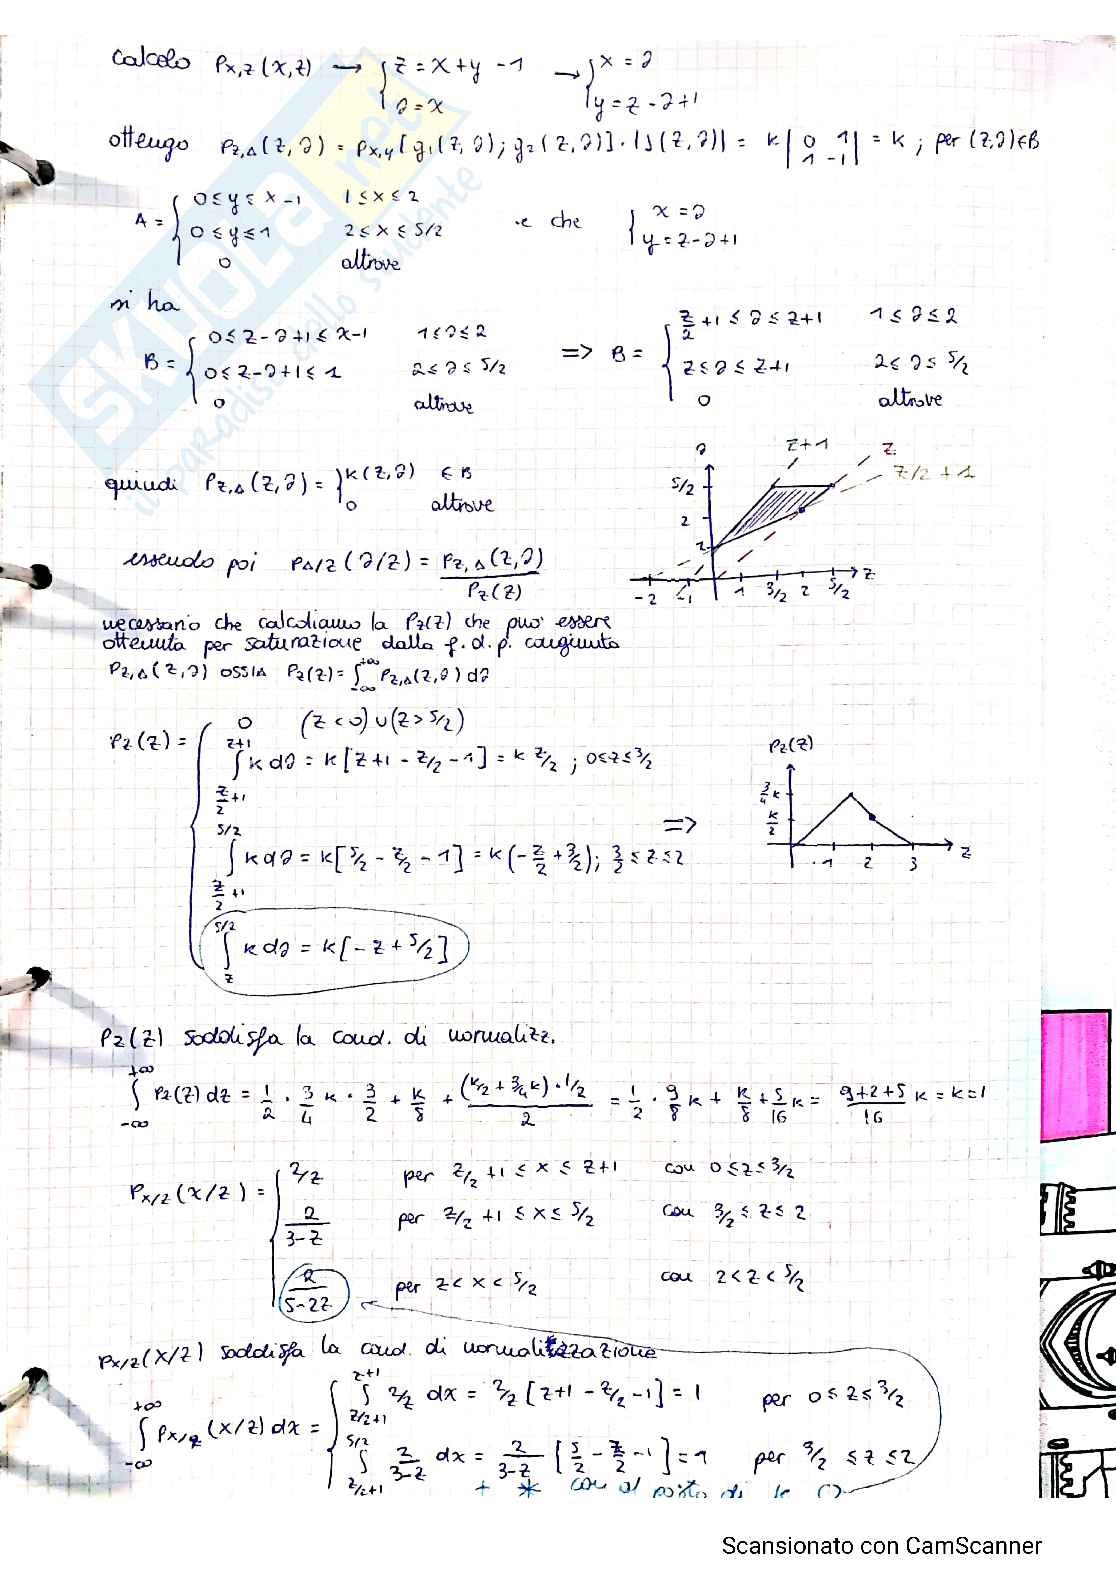 calcolo P_{X,Z}(x,z) → { z = x+y-1 → { x = ∂
∂ = x y = z-∂+1
ottengo P_{Z,Δ}(z,∂) = P_{X,Y}[g₁(z,∂); g₂(z,∂)]·|J(z,∂)| = k | 0 1 | = k ; per (z,∂)∈B
1 -1
A = { 0≤y≤x-1 1≤x≤2 e che { x = ∂
0≤y≤1 2≤x≤5/2 y = z-∂+1
0 altrove
si ha
B = { 0≤z-∂+1≤x-1 1≤∂≤2 => B = { z/2+1≤∂≤z+1 1≤∂≤2
0≤z-∂+1≤1 2≤∂≤5/2 z≤∂≤z+1 2≤∂≤5/2
0 altrove 0 altrove
∂ z+1 z
z/2+1
5/2
2
1
-2 -1 1 3/2 2 5/2 z
quindi P_{Z,Δ}(z,∂) = { k(z,∂) ∈ B
0 altrove
essendo poi P_{Δ/Z}(∂/z) = P_{Z,Δ}(z,∂) / P_Z(z)
necessario che calcoliamo la P_Z(z) che può essere
ottenuta per saturazione dalla f.d.p. congiunta
P_{Z,Δ}(z,∂) OSSIA P_Z(z) = ∫_{-∞}^{+∞} P_{Z,Δ}(z,∂) d∂
P_Z(z) = { 0 (z<0)∪(z>5/2)
∫_{z/2+1}^{z+1} k d∂ = k[z+1-z/2-1] = k z/2 ; 0≤z≤3/2
∫_{z/2+1}^{5/2} k d∂ = k[5/2-z/2-1] = k(-z/2+3/2); 3/2≤z≤2 =>
∫_{z}^{5/2} k d∂ = k[-z+5/2]
P_Z(z)
3/4 k
k/2
1 2 3 z
P_Z(z) soddisfa la cond. di normalizz.
∫_{-∞}^{+∞} P_Z(z) dz = 1/2 · 3/4 k · 3/2 + k/8 + (k/2+3/4k)·1/2 / 2 = 1/2 · 9/8 k + k/8 + 5/16 k = 9+2+5 / 16 k = k = 1
P_{X/Z}(x/z) = { 2/z per z/2+1≤x≤z+1 con 0≤z≤3/2
2/(3-z) per z/2+1≤x≤5/2 con 3/2≤z≤2
2/(5-2z) per z<x<5/2 con 2<z<5/2
P_{X/Z}(x/z) soddisfa la cond. di normalizzazione
∫_{-∞}^{+∞} P_{X/Z}(x/z) dx = { ∫_{z/2+1}^{z+1} 2/z dx = 2/z [z+1-z/2-1] = 1 per 0≤z≤3/2
∫_{z/2+1}^{5/2} 2/(3-z) dx = 2/(3-z) [5/2-z/2-1] = 1 per 3/2≤z≤2
+ * con al posto di
SKUOLA.net
il paradiso dello studente
Scansionato con CamScanner